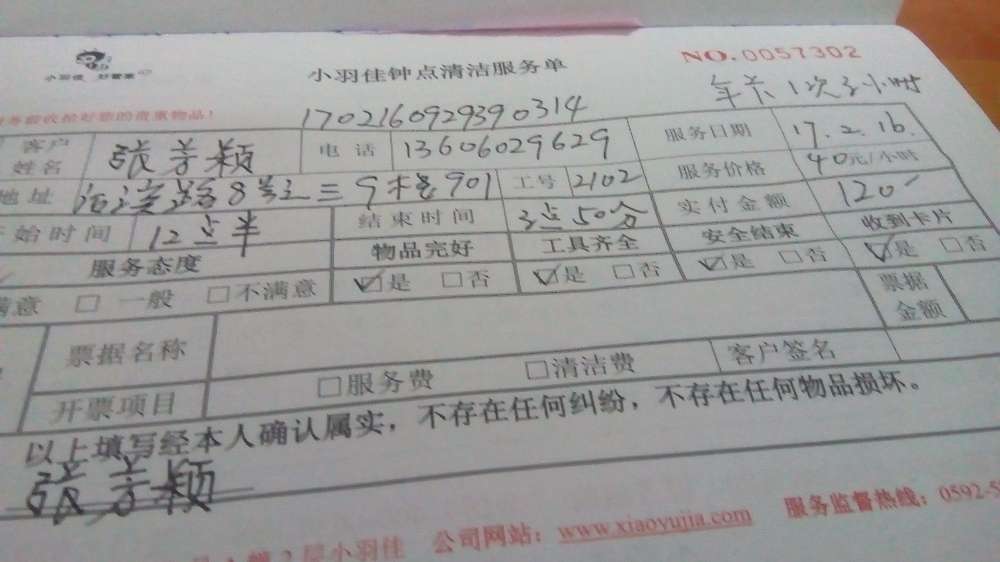 小羽佳 好管家
小羽佳钟点清洁服务单
NO.0057302
年卡1次3小时
的贵重物品!
1702160929390314
客户姓名 张芳颖 电话 13606029629 服务日期 17.2.16.
地址 8号之三9楼901 工号 2102 服务价格 40元/小时
始时间 12点半 结束时间 3点50分 实付金额 120
服务态度 物品完好 工具齐全 安全结束 收到卡片
满意 □ 一般 □不满意 ☑是 □否 ☑是 □否 ☑是 □否 ☑是 □否
票据名称 票据金额
开票项目 □服务费 □清洁费 客户签名
以上填写经本人确认属实，不存在任何纠纷，不存在任何物品损坏。
张芳颖
2层小羽佳 公司网站：www.xiaoyujia.com 服务监督热线：0592-5